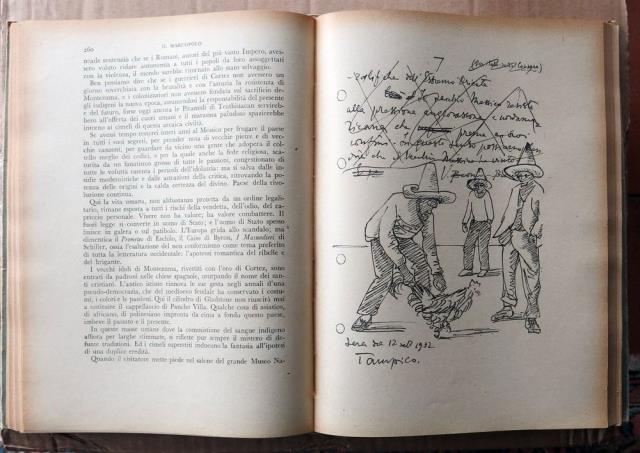 260
IL MARCOPOLO
neade sentenziò che se i Romani, autori del più vasto Impero, aves-
sero voluto ridare autonomia a tutti i popoli da loro assoggettati
con la violenza, il mondo sarebbe rientrato allo stato selvaggio.
Ben possiamo dire che se i guerrieri di Cortez non avessero un
giorno soverchiata con la brutalità e con l'astuzia la resistenza di
Montezuma, e i colonizzatori non avessero fondata sul sacrificio de-
gli indigeni la nuova epoca, assumendosi la responsabilità del presente
e del futuro, forse oggi ancora le Piramidi di Teotihuacan servireb-
bero all'offerta dei cuori umani e il marasma paludoso spazierebbe
intorno ai cimeli di questa arcaica civiltà.
Se avessi tempo tornerei interi anni al Messico per frugare il paese
in tutti i suoi segreti, per prender nota di vecchie pietre e di vec-
chie canzoni, per guardare da vicino una gente che adopera il col-
tello meglio dei codici, e per la quale anche la fede religiosa, scatu-
rita da un fanatismo grosso di tutte le passioni, congestionato di
tutte le voluttà rasenta i perusti dell'idolatria: ma si salva dalle in-
sidie moderniste e dalle astrazioni della critica, ritrovando la po-
tenza delle origini e la calda certezza del divino. Paese della rivo-
luzione continua.
Qui la vita umana, non abbastanza protetta da un ordine legali-
tario, rimane esposta a tutti i rischi della vendetta, dell'odio, del ca-
priccio personale. Vivere non ha valore; ha valore combattere. Il
fuori legge si converte in uomo di Stato; e l'uomo di Stato spesso
finisce in galera o sul patibolo. L'Europa grida allo scandalo; ma
dimentica il Prometeo di Eschilo, il Caino di Byron, I Masnadieri di
Schiller, ossia l'esaltazione del non conformismo come tema preferito
di tutta la letteratura occidentale: l'apoteosi romantica del ribelle e
del brigante.
I vecchi idoli di Montezuma, rivestiti con l'oro di Cortez, sono
entrati da padroni nelle chiese spagnole, usurpando il nome dei san-
ti cristiani. L'antico istinto rinnova le sue gesta negli annali d'una
pseudo-democrazia, che del medioevo feudale ha conservato i costu-
mi, i colori e le passioni. Qui il cilindro di Gladstone non riuscirà mai
a sostituire il cappellaccio di Pancho Villa. Qualche cosa di asiatico,
di africano, di polinesiano impronta da cima a fondo questo paese,
imbeve il passato e il presente.
In queste masse umane dove la commistione del sangue indigeno
affiora per larghe stimmate, si riflette pur sempre il mistero di de-
funte tradizioni. Ed i cimeli superstiti inducono la fantasia all'ipotesi
di una duplice eredità.
Quando il visitatore mette piede nel salone del grande Museo Na-
7
dell'Estremo Oriente
vecchio Messico
alla pressione
che preme ai suoi
confini
12 1932
Tampico.